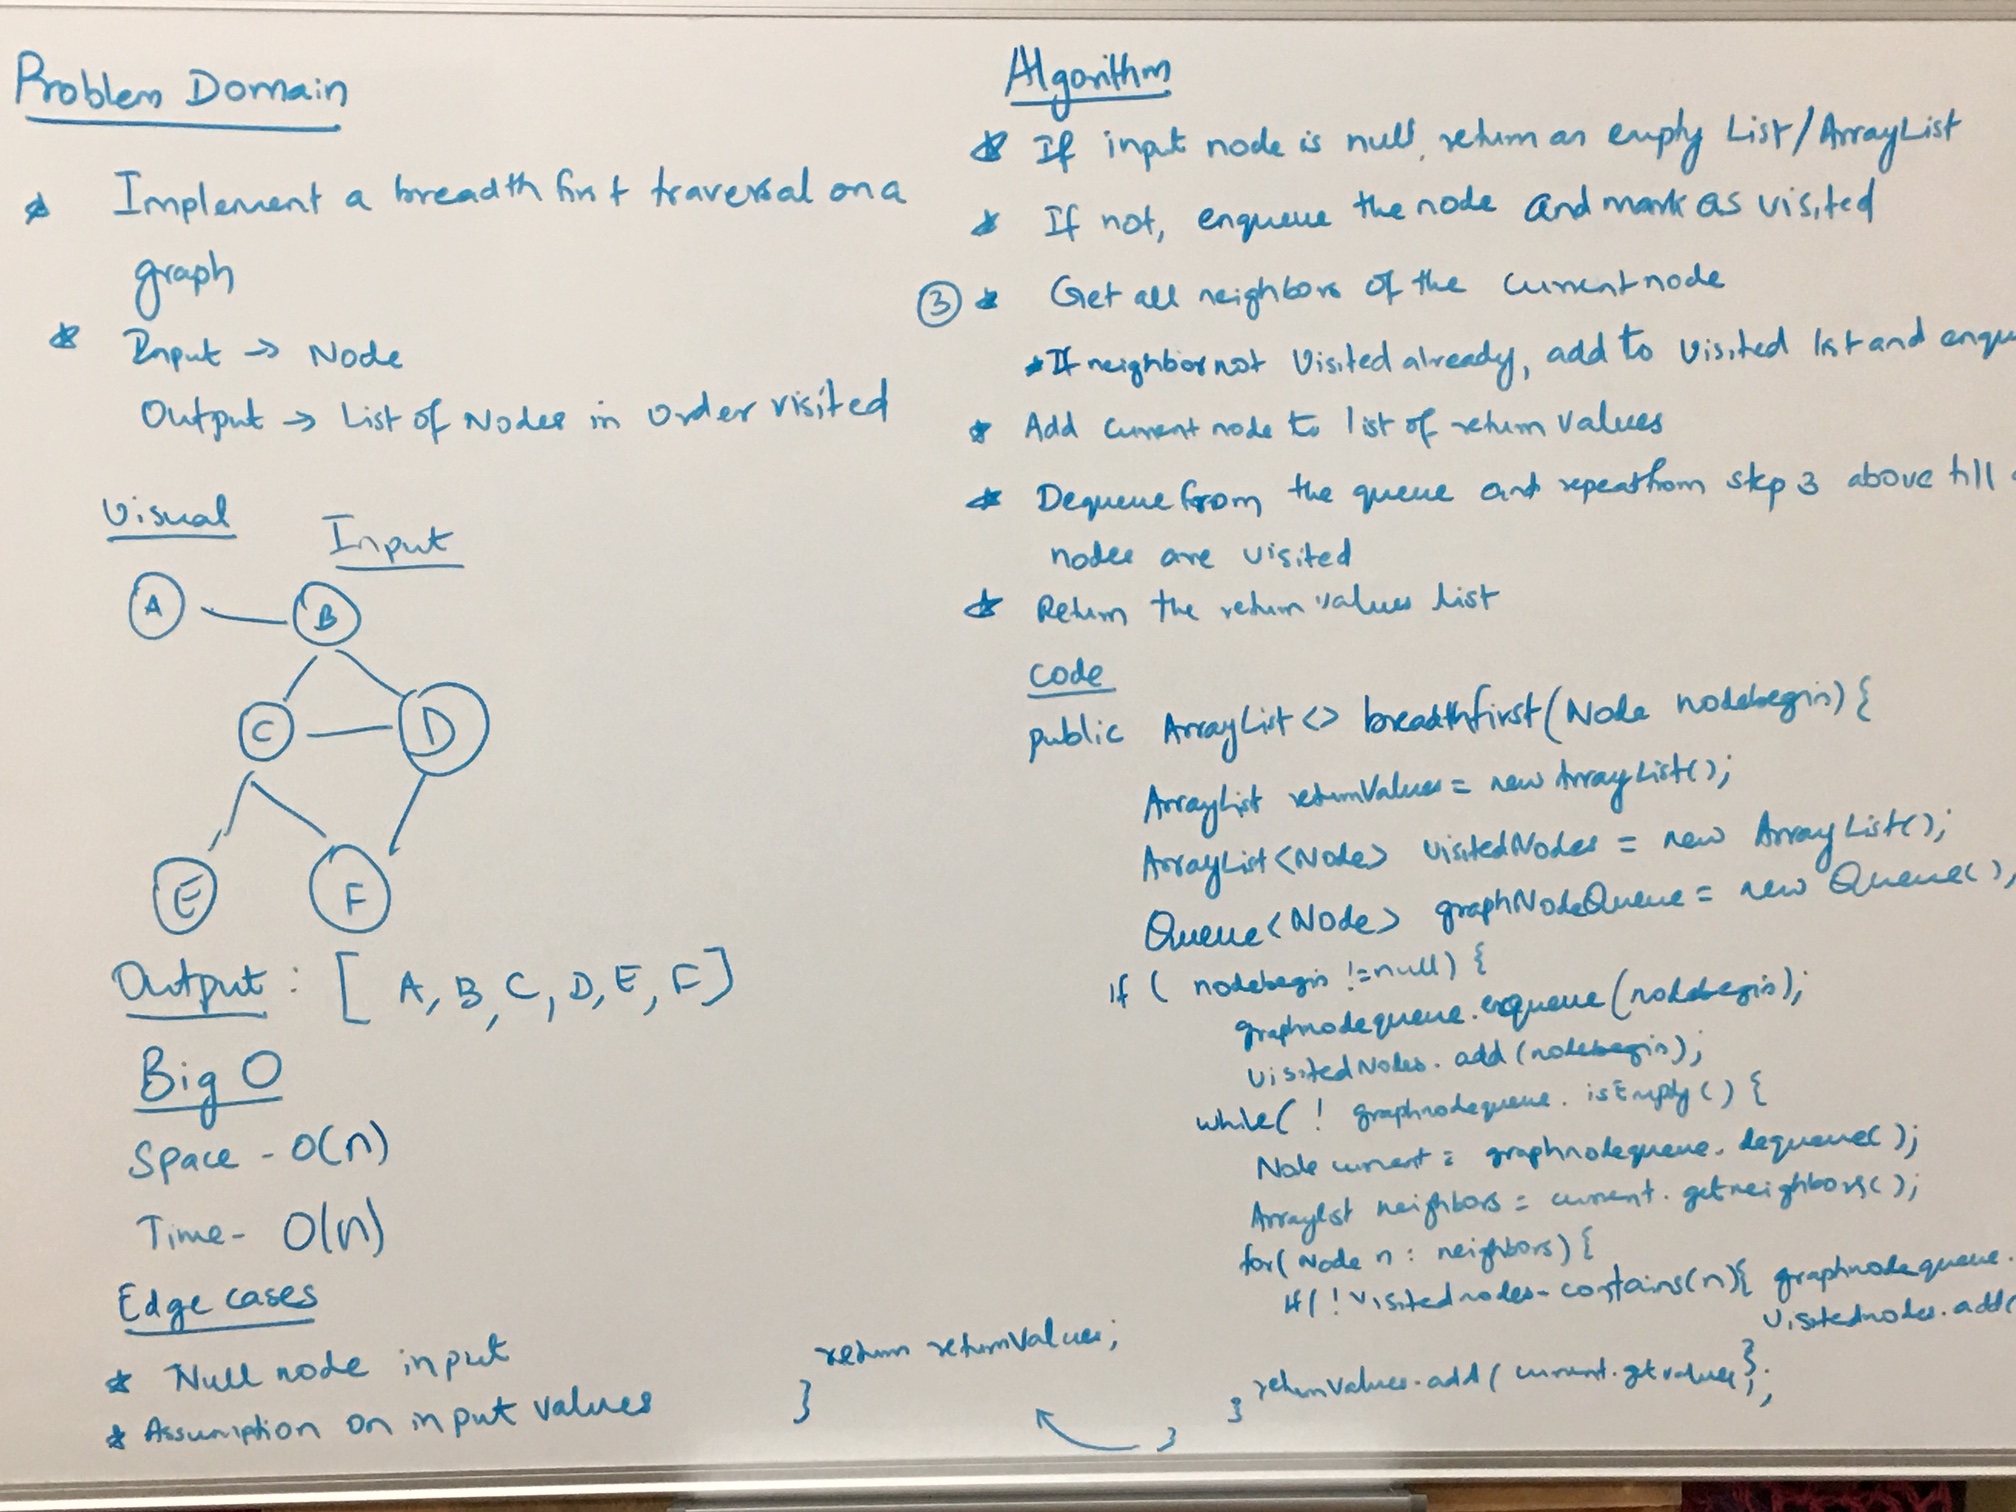 Problem Domain
* Implement a breadth first traversal on a
graph
* Input -> Node
Output -> List of Nodes in order visited
Visual
Input
A
B
C
D
E
F
Output : [ A, B, C, D, E, F ]
Big O
Space - O(n)
Time - O(n)
Edge cases
* Null node input
* Assumption on input values
Algorithm
* If input node is null, return an empty List/ArrayList
* If not, enqueue the node and mark as visited
③ * Get all neighbors of the current node
* If neighbor not visited already, add to visited list and enqu
* Add current node to list of return values
* Dequeue from the queue and repeat from step 3 above till
nodes are visited
* Return the return values list
Code
public ArrayList<> breadthfirst(Node nodebegin) {
ArrayList returnValues = new ArrayList();
ArrayList<Node> visitedNodes = new ArrayList();
Queue<Node> graphNodeQueue = new Queue();
if ( nodebegin != null) {
graphnodequeue.enqueue(nodebegin);
visitedNodes.add(nodebegin);
while( ! graphnodequeue.isEmpty() {
Node current = graphnodequeue.dequeue();
Arraylist neighbors = current.getneighbors();
for( Node n : neighbors) {
if( ! visitednodes.contains(n){ graphnodequeue.
visitednodes.add(
}
returnvalues.add( current.getvalue);
}
}
return returnValues;
}